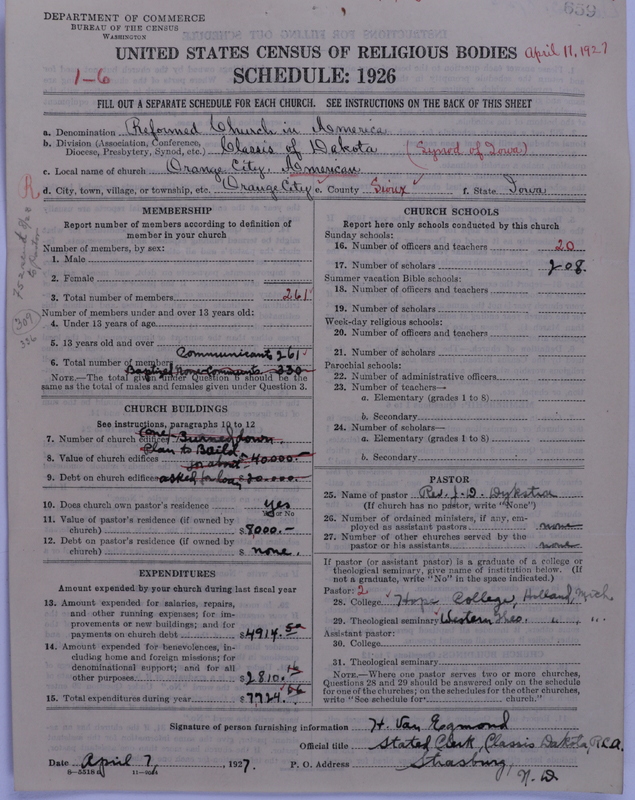 DEPARTMENT OF COMMERCE
BUREAU OF THE CENSUS
WASHINGTON
659
UNITED STATES CENSUS OF RELIGIOUS BODIES
April 11, 1927
1-6
SCHEDULE: 1926
FILL OUT A SEPARATE SCHEDULE FOR EACH CHURCH. SEE INSTRUCTIONS ON THE BACK OF THIS SHEET
a. Denomination Reformed Church in America
b. Division (Association, Conference, Diocese, Presbytery, Synod, etc.) Classis of Dakota (Synod of Iowa)
c. Local name of church Orange City, American
R
d. City, town, village, or township, etc. Orange City e. County Sioux f. State Iowa
MEMBERSHIP
Report number of members according to definition of
member in your church
Number of members, by sex:
1. Male
2. Female
3. Total number of members 261
Number of members under and over 13 years old:
309
336
4. Under 13 years of age
5. 13 years old and over
6. Total number of members Communicants 261
Baptized Non-Communts 330
NOTE.—The total given under Question 6 should be the
same as the total of males and females given under Question 3.
CHURCH BUILDINGS
See instructions, paragraphs 10 to 12
7. Number of church edifices (one) Burned down
Plan to Build
8. Value of church edifices for about $40000.-
9. Debt on church edifices asked for loan $20.000.-
10. Does church own pastor's residence yes
Yes or No
11. Value of pastor's residence (if owned by
church) $8000.-
12. Debt on pastor's residence (if owned by
church) $ none.
EXPENDITURES
Amount expended by your church during last fiscal year
13. Amount expended for salaries, repairs,
and other running expenses; for im-
provements or new buildings; and for
payments on church debt $4914.50
14. Amount expended for benevolences, in-
cluding home and foreign missions; for
denominational support; and for all
other purposes $2810.16
15. Total expenditures during year $7724.66
CHURCH SCHOOLS
Report here only schools conducted by this church
Sunday schools:
16. Number of officers and teachers 20
17. Number of scholars 208.
Summer vacation Bible schools:
18. Number of officers and teachers
19. Number of scholars
Week-day religious schools:
20. Number of officers and teachers
21. Number of scholars
Parochial schools:
22. Number of administrative officers
23. Number of teachers—
a. Elementary (grades 1 to 8)
b. Secondary
24. Number of scholars—
a. Elementary (grades 1 to 8)
b. Secondary
PASTOR
25. Name of pastor Rev. J. D. Dykstra
(If church has no pastor, write "None")
26. Number of ordained ministers, if any, em-
ployed as assistant pastors none
27. Number of other churches served by the
pastor or his assistants none
If pastor (or assistant pastor) is a graduate of a college or
theological seminary, give name of institution below. (If
not a graduate, write "No" in the space indicated.)
Pastor: 2
28. College Hope College, Holland, Mich.
29. Theological seminary Western Theo. " "
Assistant pastor:
30. College
31. Theological seminary
NOTE.—Where one pastor serves two or more churches,
Questions 28 and 29 should be answered only on the schedule
for one of the churches; on the schedules for the other churches,
write "See schedule for church."
Signature of person furnishing information H. Van Egmond
Official title Stated Clerk, Classis Dakota, R.C.A.
Date April 7, 1927. P. O. Address Strasburg, N. D
8—5518 a 11—9564